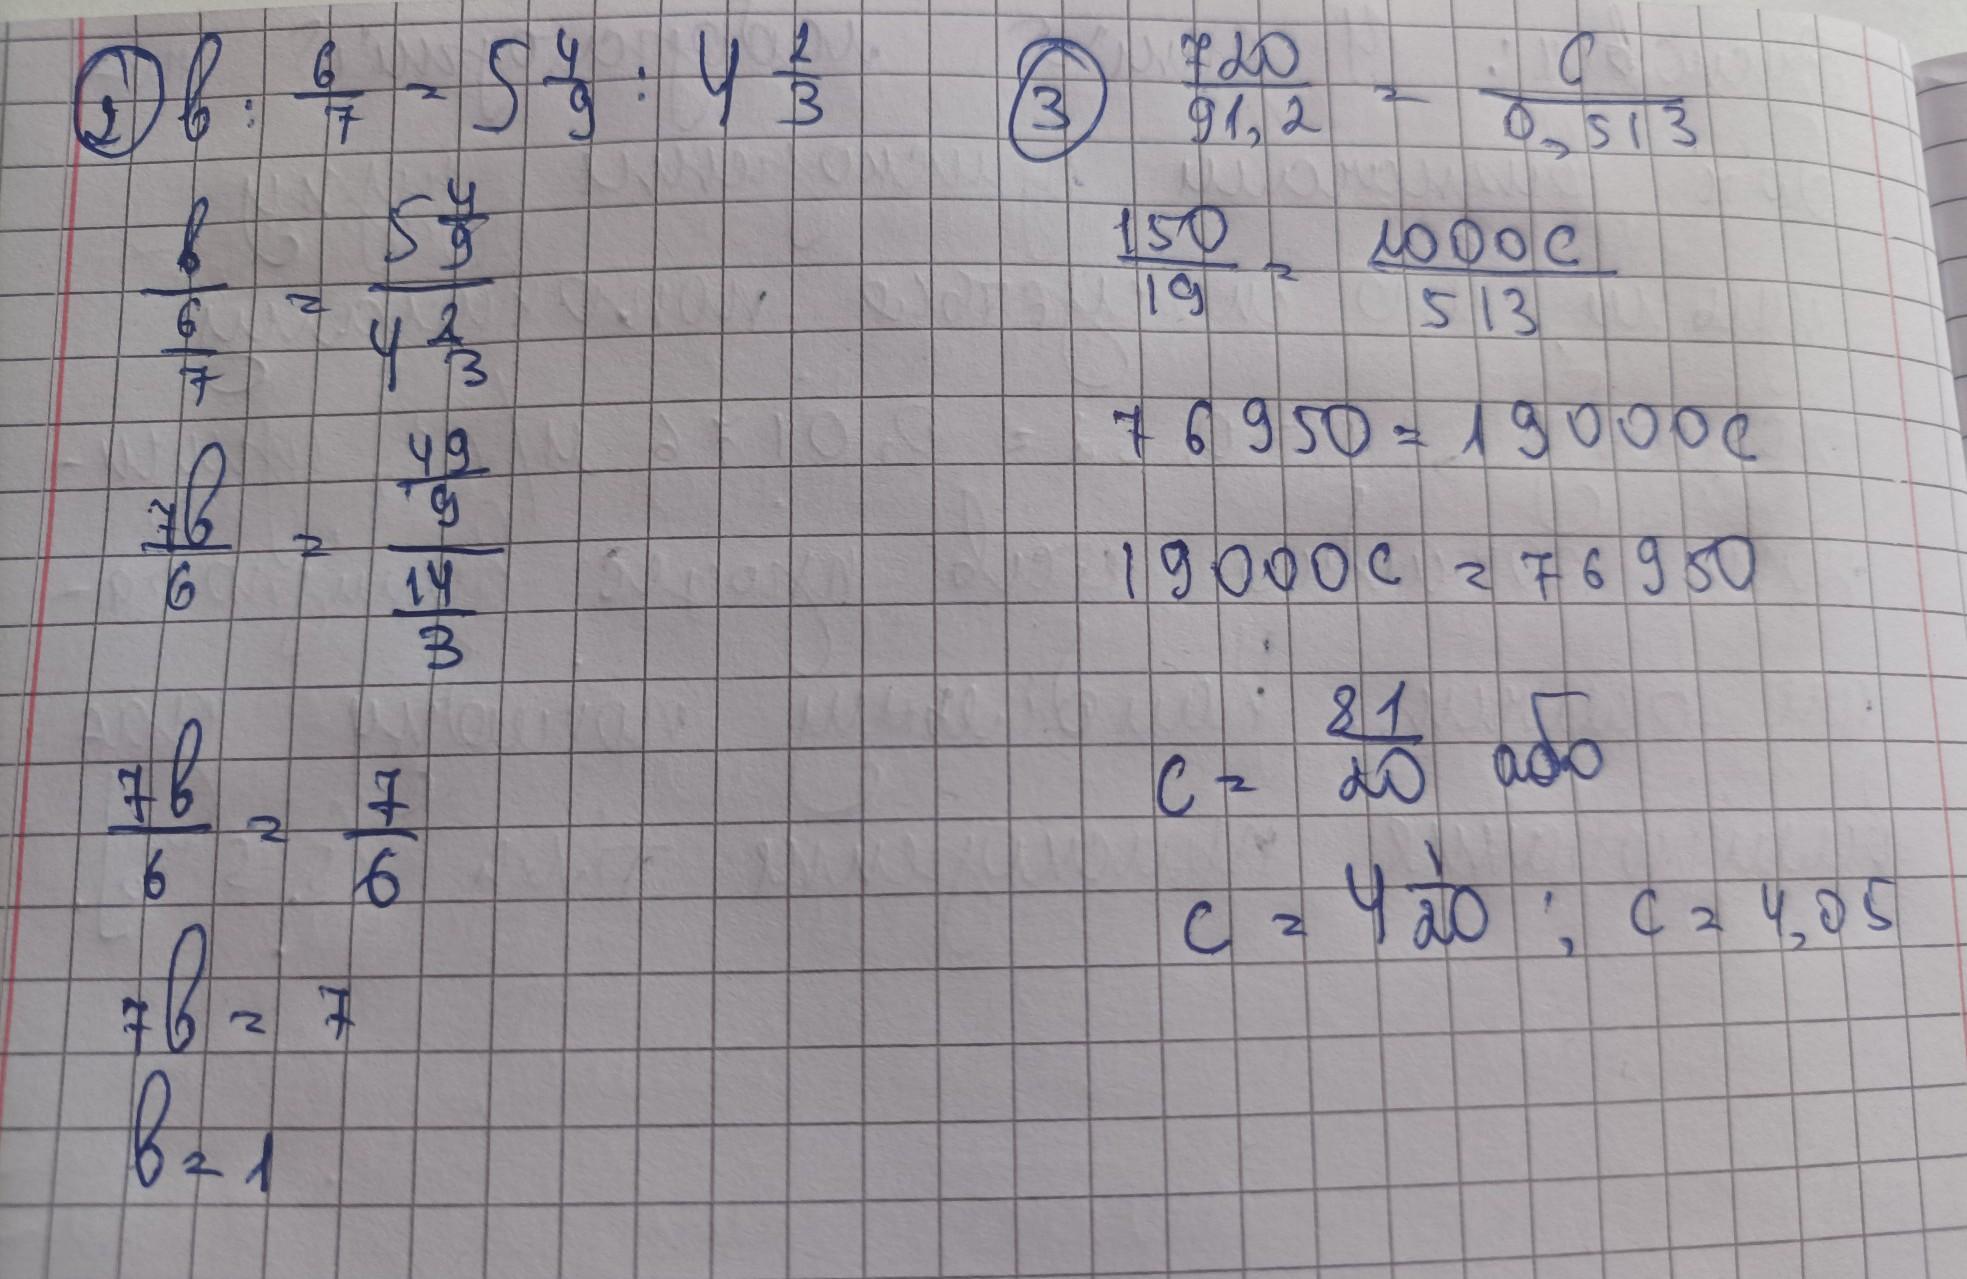 2 b : 6/7 = 5 4/9 : 4 2/3
b / (6/7) = (5 4/9) / (4 2/3)
7b/6 = (49/9) / (14/3)
7b/6 = 7/6
7b = 7
b = 1
3 720/91,2 = C/0,513
150/19 = 1000C/513
76950 = 19000C
19000C = 76950
C = 81/20 або
C = 4 1/20 ; C = 4,05